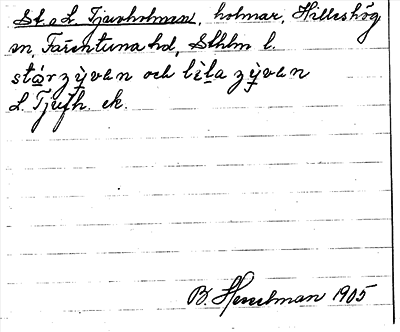 St. o L. Tjuvholmen, holmar, Hilleshög
sn, Färentuna hd, Sthlm l.
stọrzỳven och lìla zỳven
L. Tjufh. ek.
B. Hesselman 1905